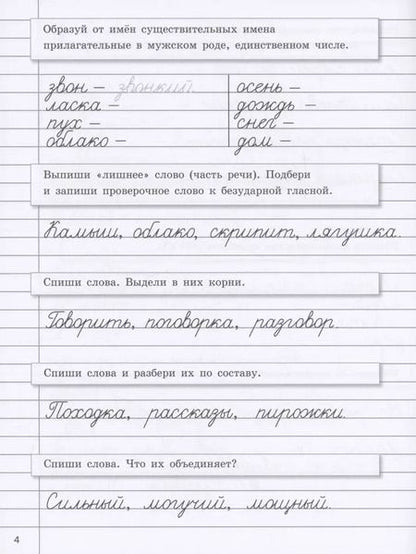 Образуй от имён существительных имена
прилагательные в мужском роде, единственном числе.
звон – звонкий. осень –
ласка – дождь –
пух – снег –
облако – дом –
Выпиши «лишнее» слово (часть речи). Подбери
и запиши проверочное слово к безударной гласной.
Камыш, облако, скрипит, лягушка.
Спиши слова. Выдели в них корни.
Говорить, поговорка, разговор.
Спиши слова и разбери их по составу.
Походка, рассказы, пирожки.
Спиши слова. Что их объединяет?
Сильный, могучий, мощный.
4